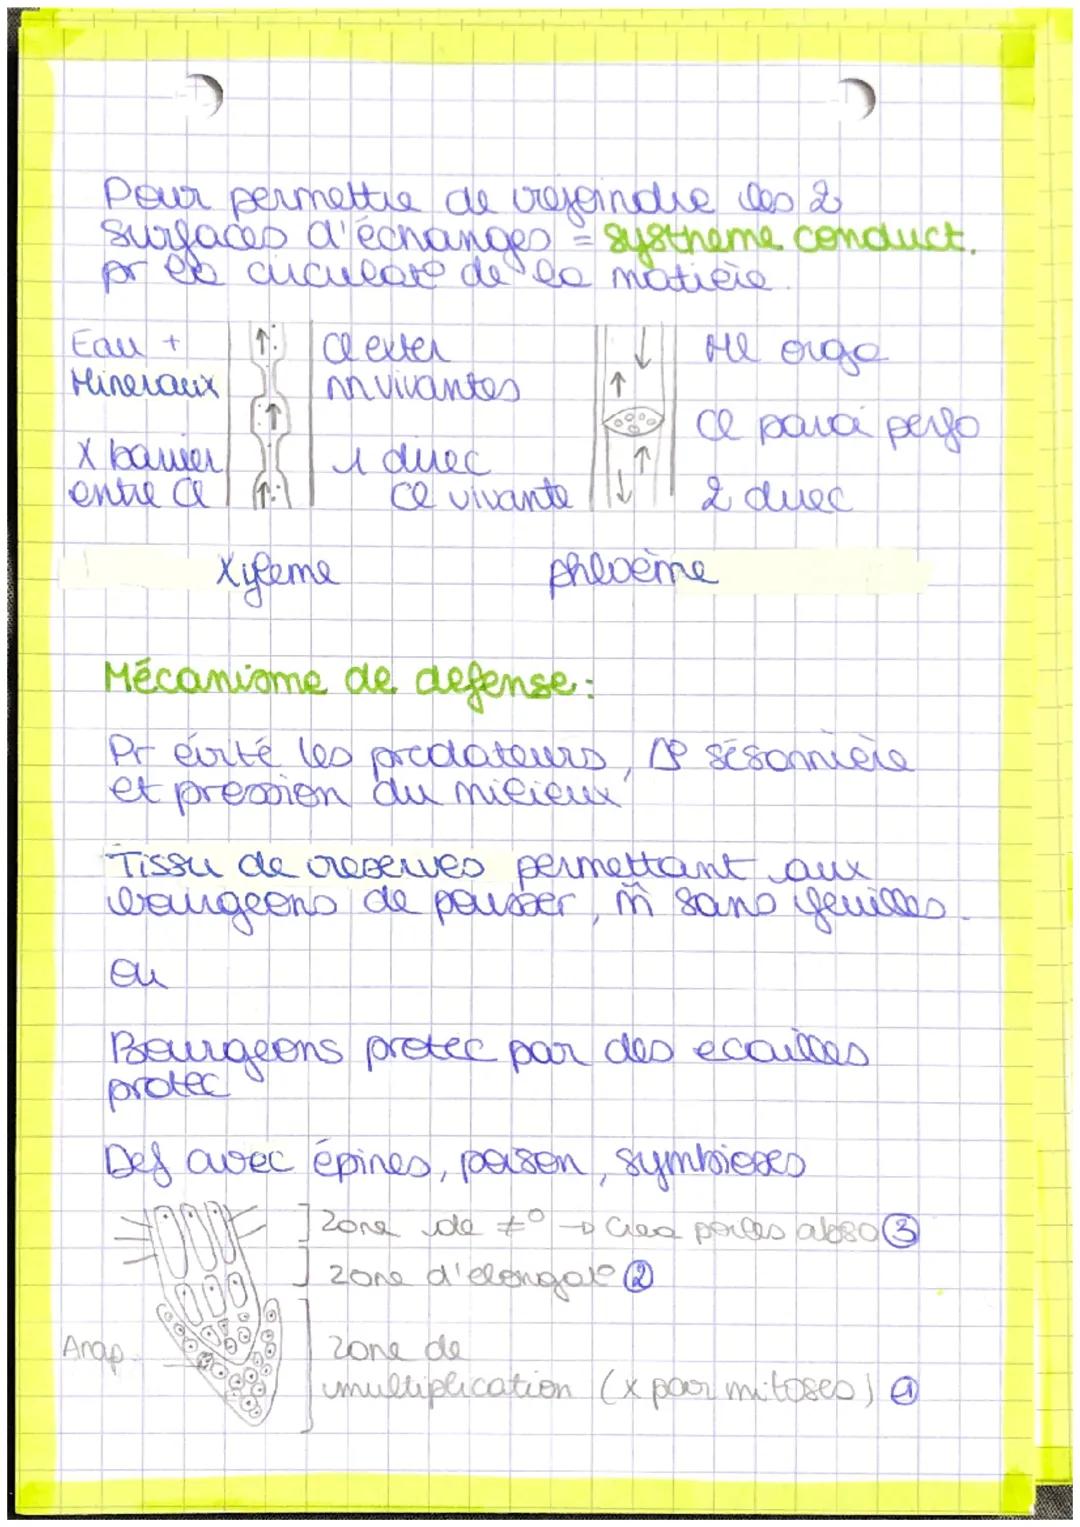 Pour permettre de rejoindre les 2
surfaces d'échanges = systheme conduct.
pr la circulat° de la matière.
Eau +
Mineraux
X barrier
entre Cl
Cl
nn vivantes
1 direc
Cl vivante
orga
Cl paroi perfo
2 direc
Xyleme
phloème
Mécanisme de defense :
Pr évité les predateurs, sésonnière
et pression du milieux
Tissu de reserves permettant aux
bourgeons de pousser, m̂ sans feuilles.
ou
Bourgeons protec par des ecailles
protec
Def avec épines, poison, symbioses
Zone de ≠° → Crea poiles abso ③
zone d'elongat° ②
zone de
multiplication (x par mitoses) ①